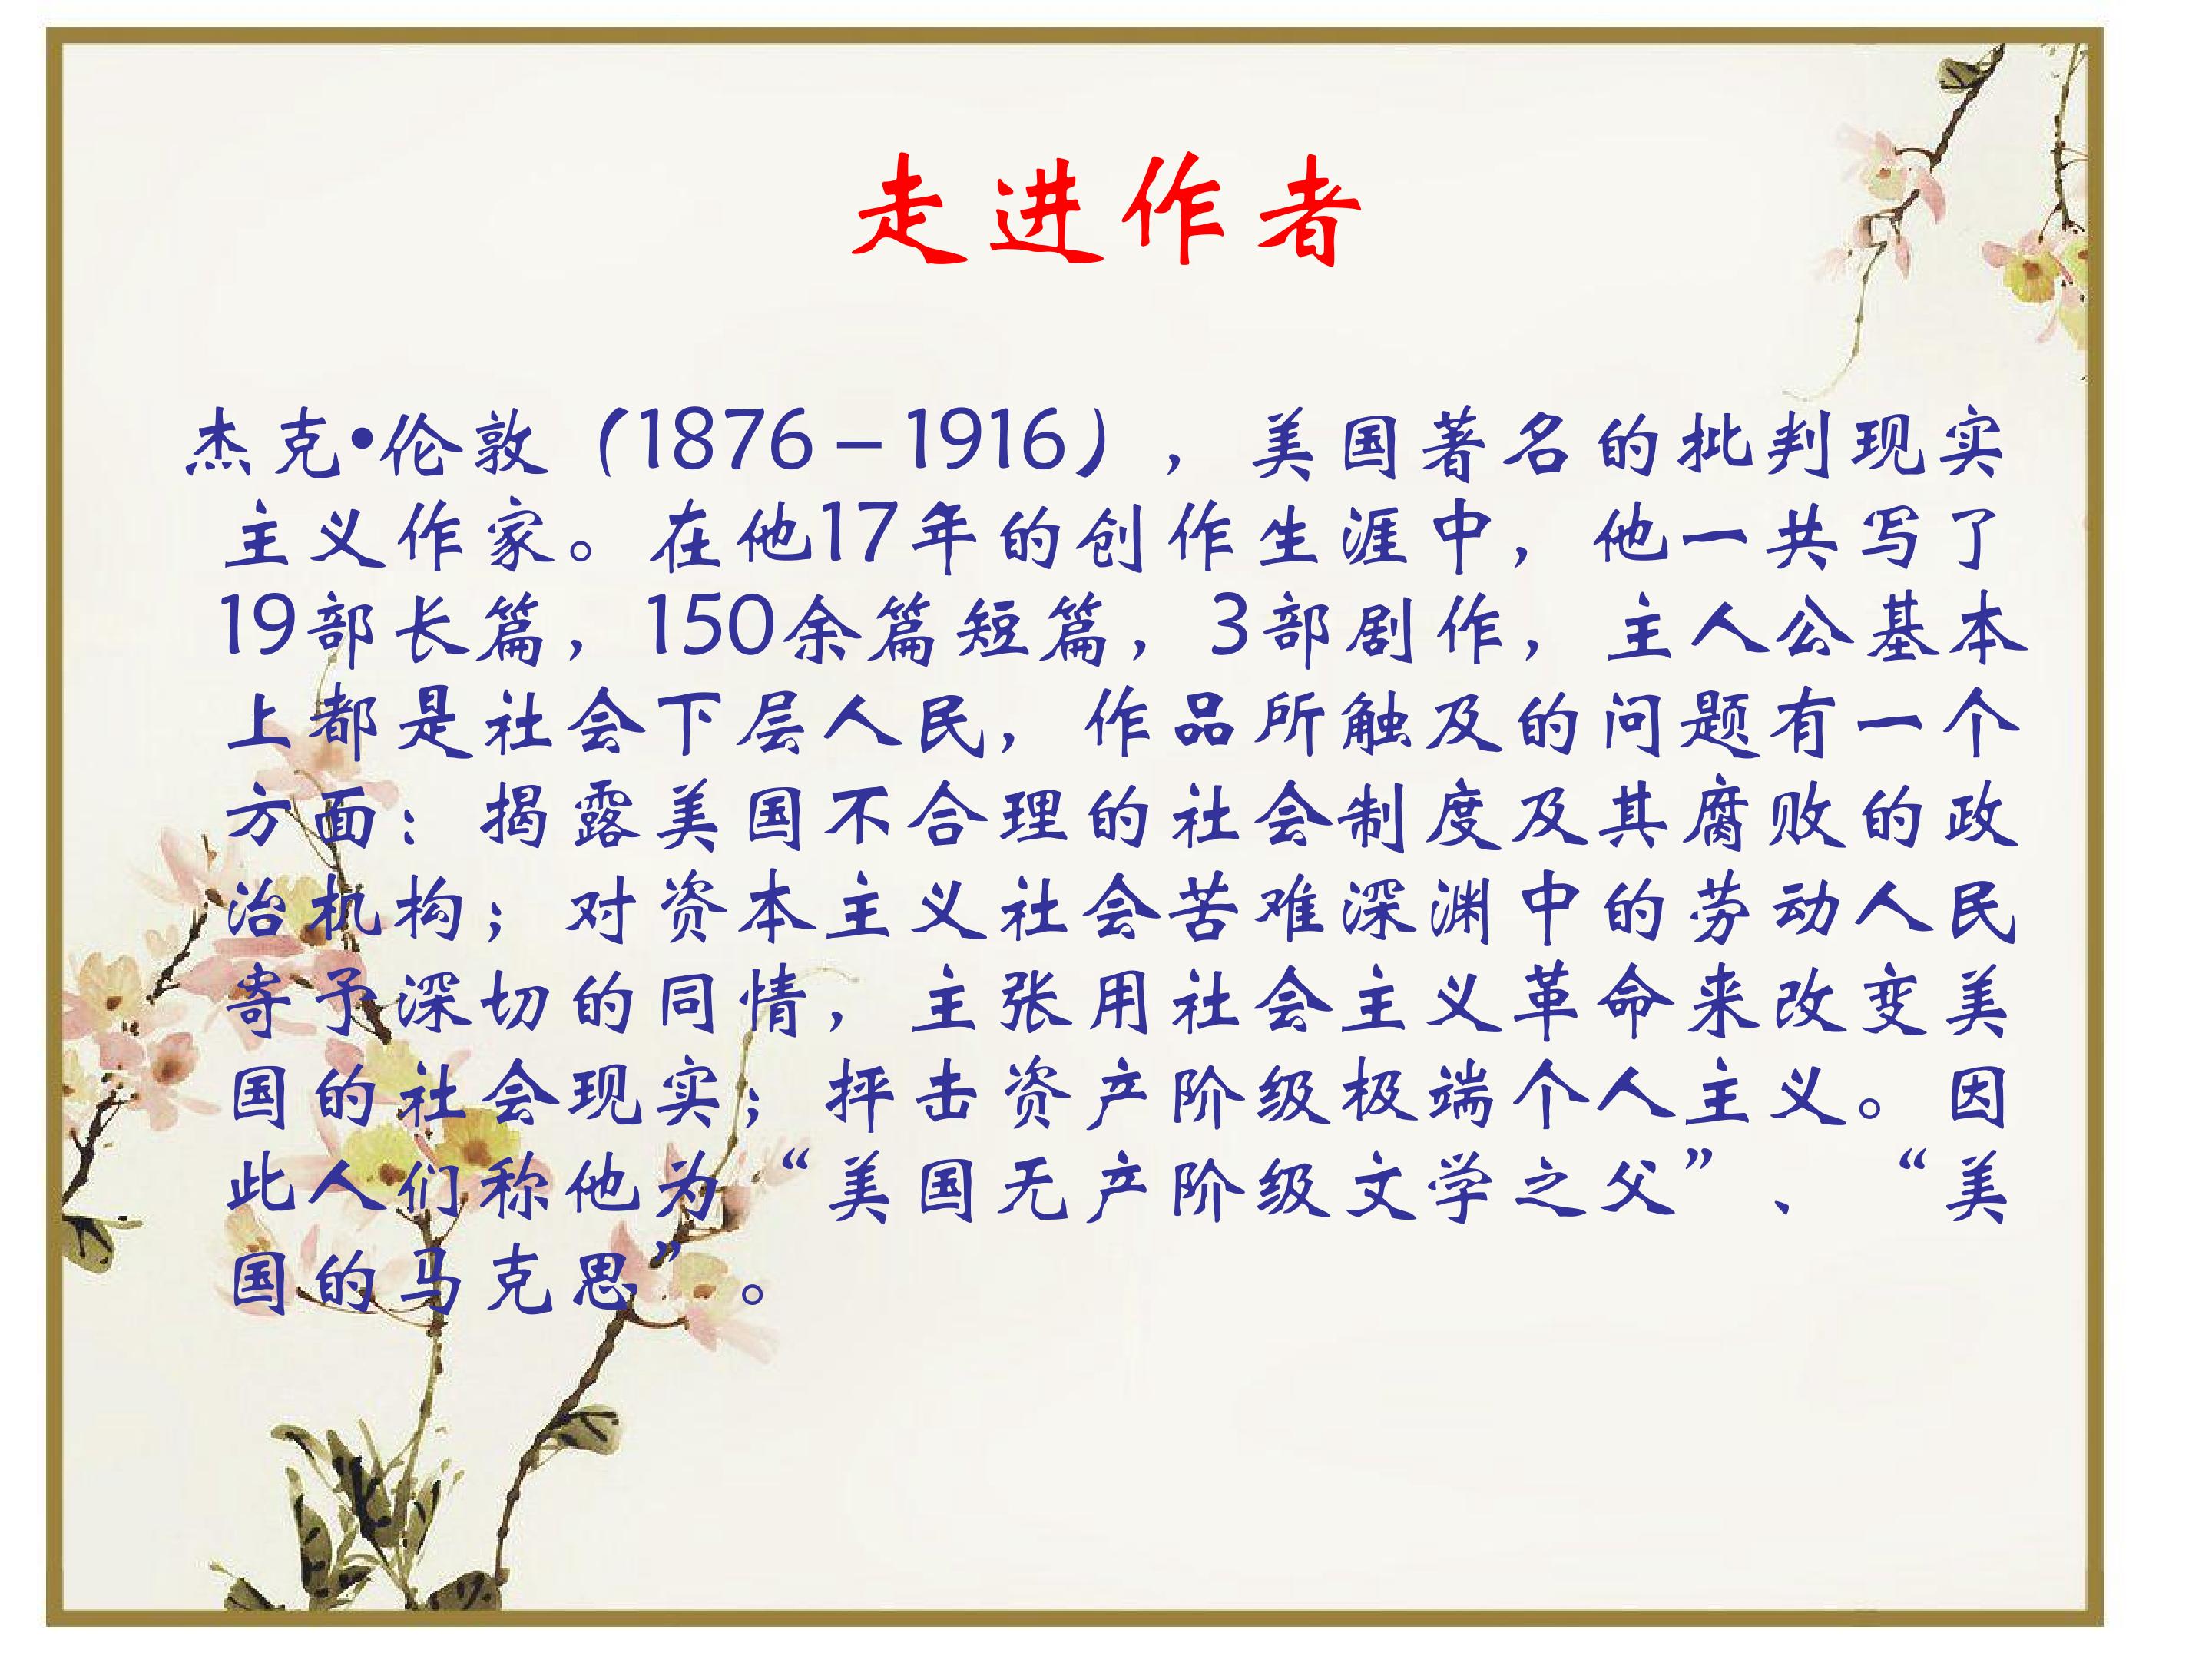 走进作者
杰克•伦敦（1876－1916），美国著名的批判现实
主义作家。在他17年的创作生涯中，他一共写了
19部长篇，150余篇短篇，3部剧作，主人公基本
上都是社会下层人民，作品所触及的问题有一个
方面：揭露美国不合理的社会制度及其腐败的政
治机构；对资本主义社会苦难深渊中的劳动人民
寄予深切的同情，主张用社会主义革命来改变美
国的社会现实；抨击资产阶级极端个人主义。因
此人们称他为“美国无产阶级文学之父”、“美
国的马克思”。